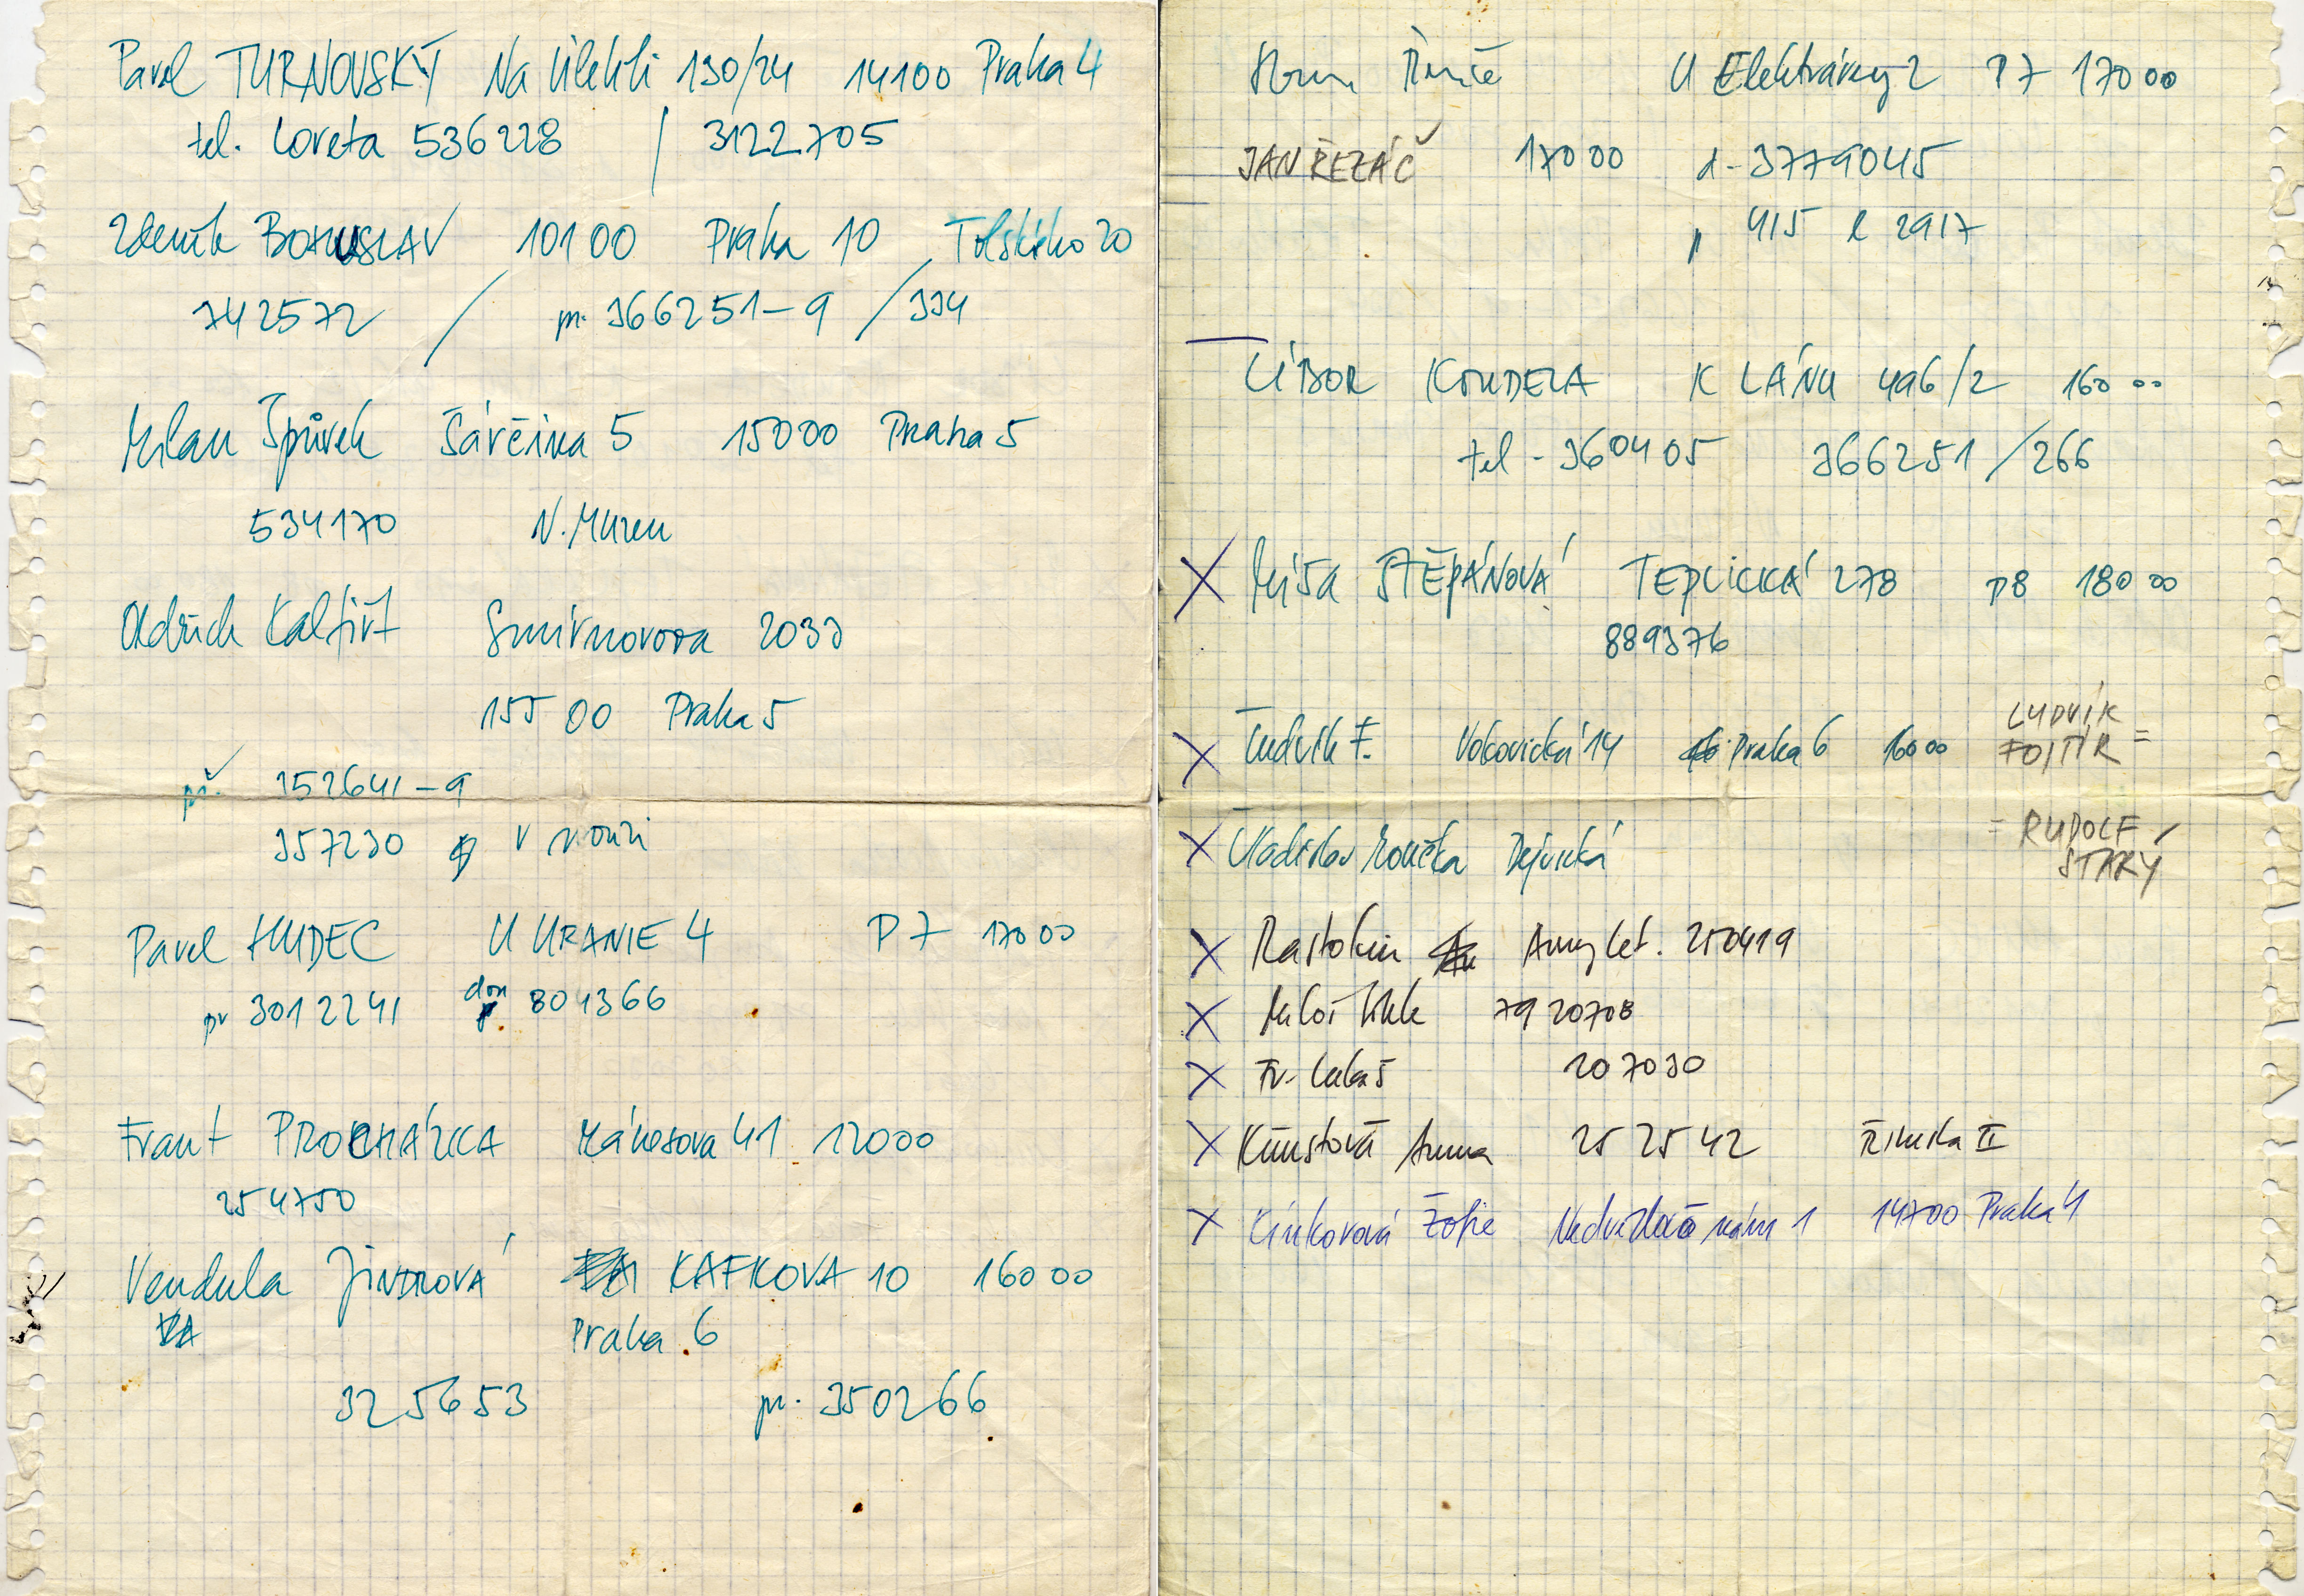 Pavel TURNOVSKÝ Na Úlehli 130/24 14100 Praha 4
tel. Loreta 536228 / 3122705
Zdeněk BOHUSLAV 10100 Praha 10 Tolstého 20
742572 / pr. 366251-9 / 334
Milan Špůrek Šárčina 5 15000 Praha 5
534170 N. Muzeu
Oldřich Kalfiřt Smirnovova 2033
155 00 Praha 5
př. 352641-9
357230 v nouzi
Pavel HUDEC U URANIE 4 P 7 17000
pr 3012241 dom 804366
Frant PROCHÁZKA Mánesova 41 12000
254750
Vendula JINDROVÁ KAFKOVA 10 16000
Praha 6
325653 pr. 350266
U Elektrárny 2 P7 17000
JAN ŘEZÁČ 17000 d-3779045
415 l 2917
LÍBOR KOUDELA K LÁNU 496/2 160 00
tel - 360405 366251/266
X Míša ŠTĚPÁNOVÁ TEPLICKÁ 278 P8 180 00
889376
X Ludvík F. Vokovická 14 Praha 6 16000 LUDVÍK FOJTÍK =
X Vladislav Dejvická = RUDOLF STARÝ
X Rastokin Amulet. 250419
X Miloš 7920708
X Fr. Lukáš 207030
X Kůustová Anna 25 25 42 Římská II
X Cinkorová Žofie nám 1 14700 Praha 4